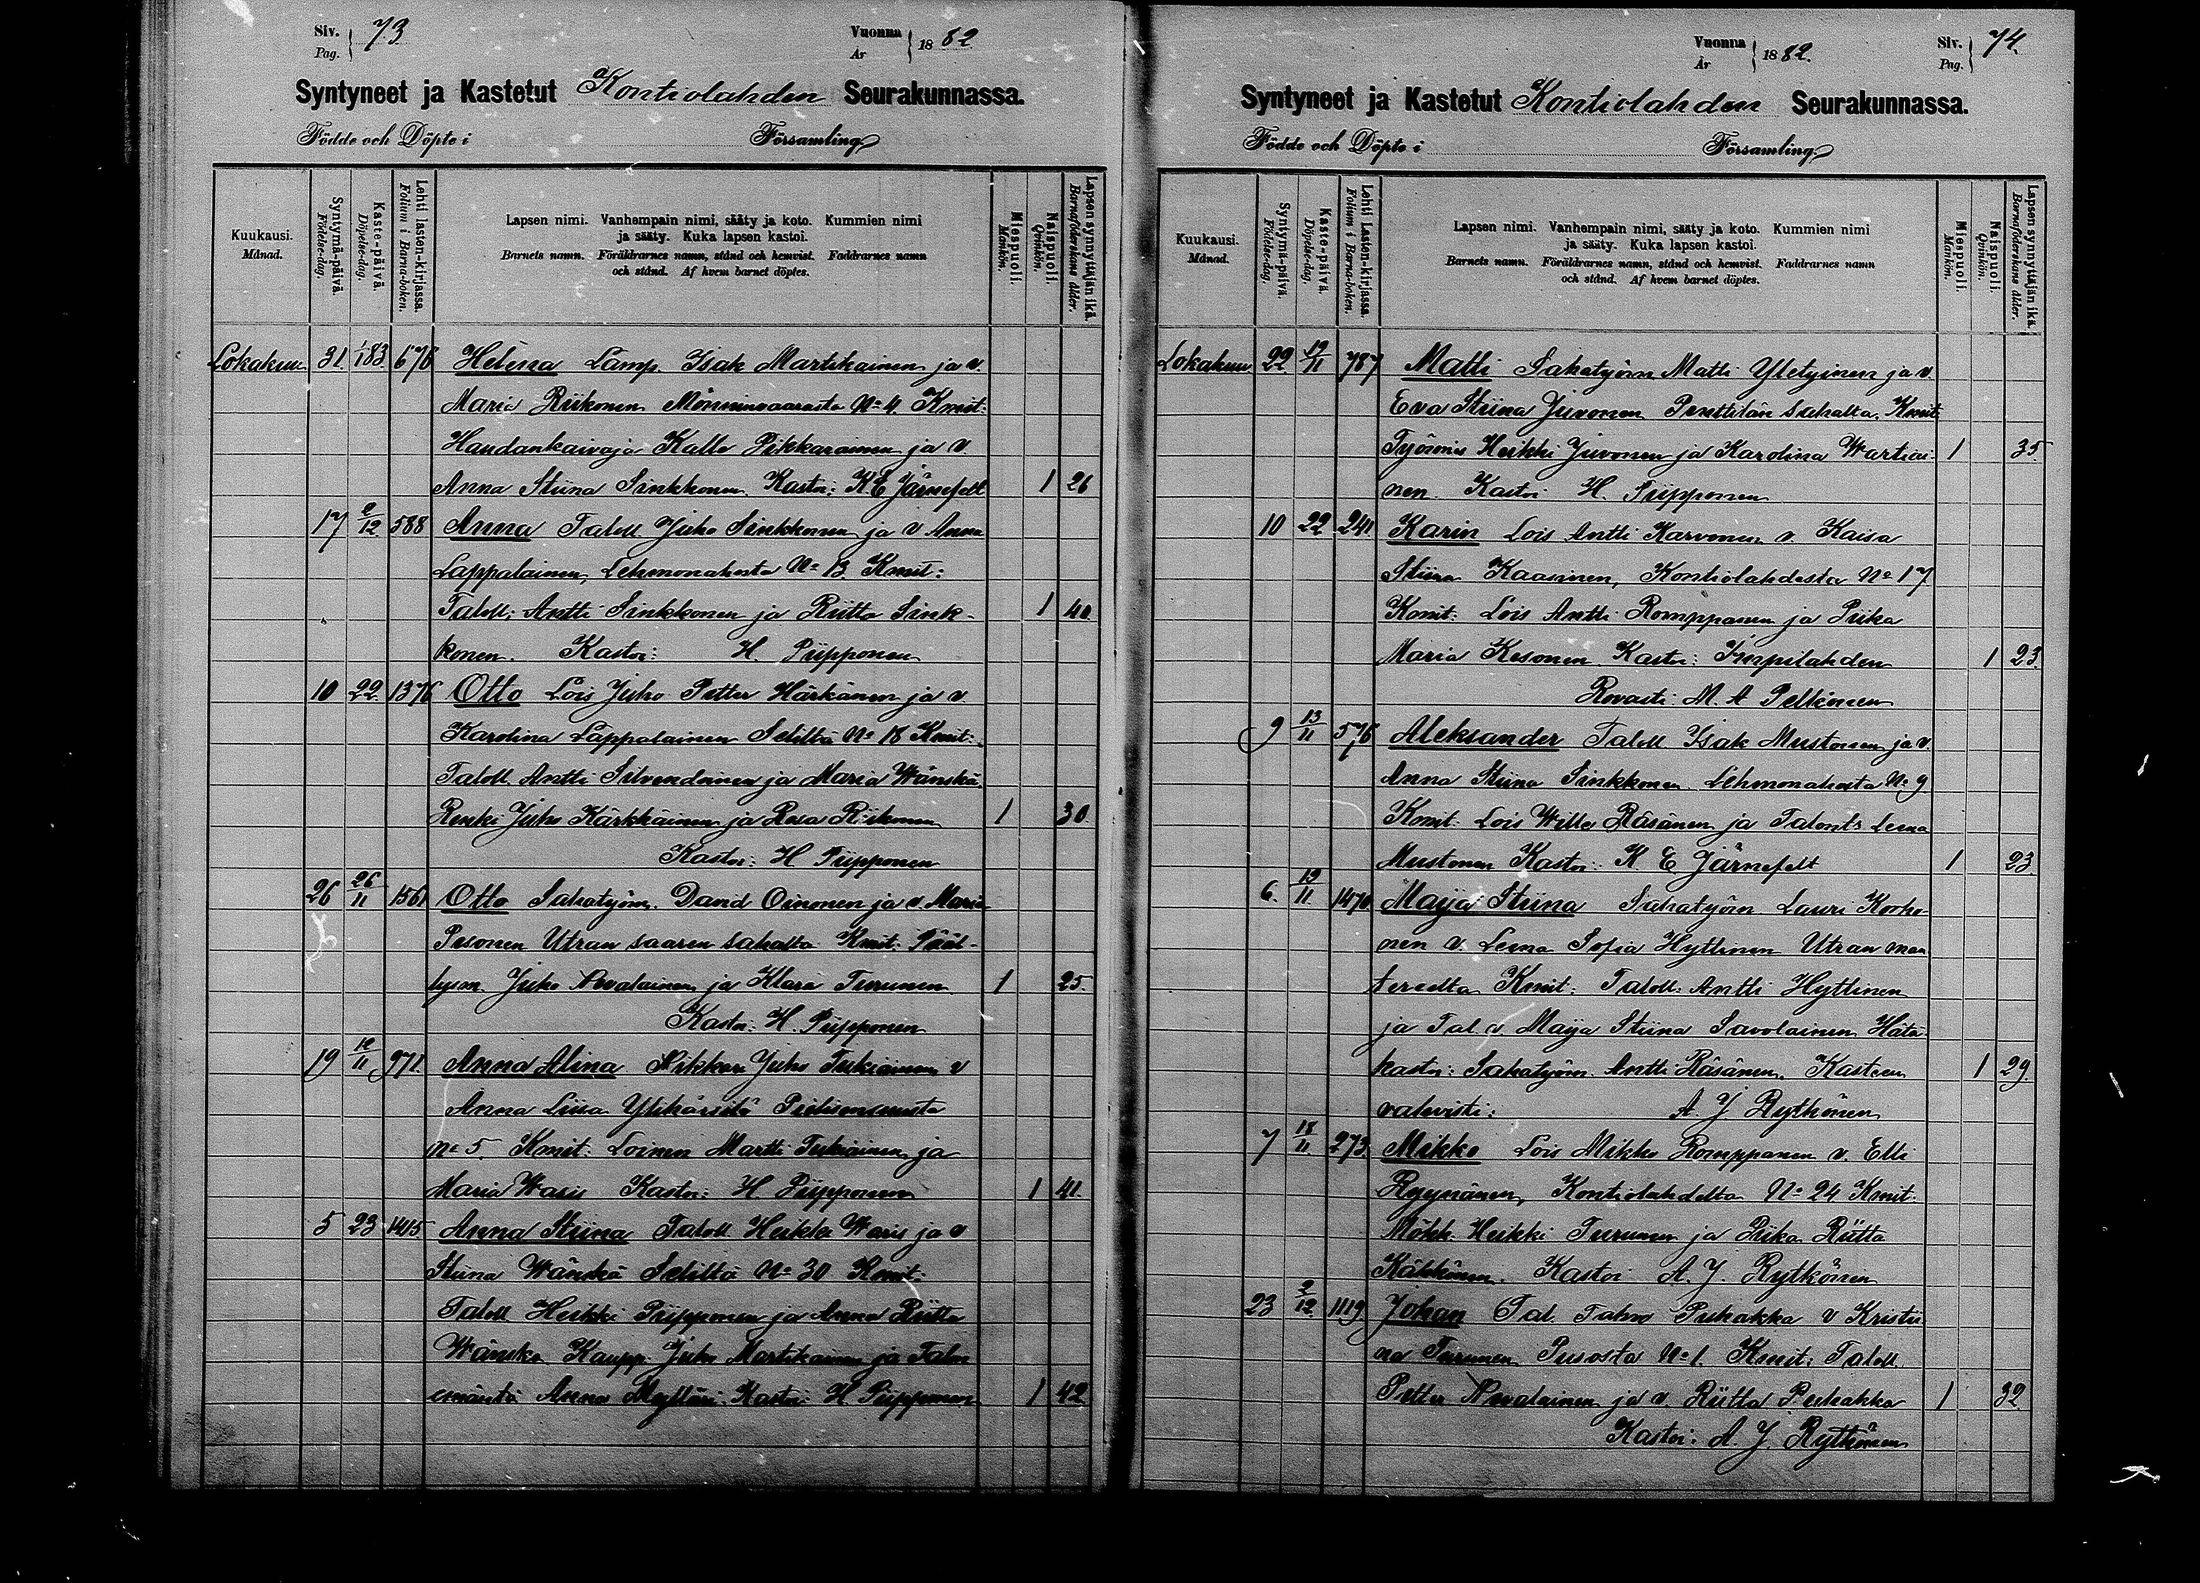 Siv. Pag. 73. Vuonna År 1882
Syntyneet ja Kastetut Kontiolahden Seurakunnassa.
Födde och Döpte i Församling
Kuukausi. Månad.
Syntymä-päivä. Födelse-dag.
Kaste-päivä. Döpelse-dag.
Lehti lasten-kirjassa. Folium i Barna-boken.
Lapsen nimi. Vanhempain nimi, sääty ja koto. Kummien nimi
ja sääty. Kuka lapsen kastoi.
Barnets namn. Föräldrarnes namn, stånd och hemvist. Faddrarnes namn
och stånd. Af hvem barnet döptes.
Miespuoli. Mankön.
Naispuoli. Qvinkön.
Lapsen synnyttäjän ikä. Barnaföderskans ålder.
Lokakuu 31. 1/1 83. 676 Helena Lamp. Isak Martikainen ja v.
Maria Riikonen Mönninvaarasta No 4. Kmit:
Haudankaivaja Kalle Pikkarainen ja v.
Anna Stiina Sinkkonen. Kastoi: K E Järnefelt 1 26
17 2/12 588 Anna Taloll Juho Sinkkonen ja v Anna
Lappalainen, Lehmonahosta No 13. Kmit:
Taloll: Antti Sinkkonen ja Riitta Sink- 1 40
konen. Kastoi: H. Piipponen
10 22. 1376 Otto Lois Juho Petter Härkänen ja v.
Karolina Lappalainen Seliltä No 18 Kmit:
Taloll. Antti Silvendoinen ja Maria Wänskä.
Renki Juho Kärkkäinen ja Rosa Riikonen 1 30
Kastoi: H Piipponen
26 26/11 1561 Otto Sahatyöm. David Oinonen ja v. Maria
Pesonen Utran saaren sahalta Kmit:
Juho Nevalainen ja Klara Turunen 1 25.
Kastoi: H. Piipponen
19 12/11 971. Anna Alina Nikkari Juho Tukiainen v
Anna Liisa Ylikärsitä
No 5. Kmit: Loinen Martti Tukiainen ja
Maria Waris Kastoi: H. Piipponen 1 41.
5 23 1415 Anna Stiina Taloll Heikki Waris ja v
Stiina Wänskä Seliltä No 30 Kmit:
Taloll Heikki Piipponen ja Anna Riitta
Wänskä Kaupp Juho Martikainen ja Talon
emäntä Anna Kastoi: H Piipponen 1 42
Vuonna År 1882. Siv. Pag. 74.
Syntyneet ja Kastetut Kontiolahden Seurakunnassa.
Födde och Döpte i Församling
Kuukausi. Månad.
Syntymä-päivä. Födelse-dag.
Kaste-päivä. Döpelse-dag.
Lehti Lasten-kirjassa. Folium i Barna-boken.
Lapsen nimi. Vanhempain nimi, sääty ja koto. Kummien nimi
ja sääty. Kuka lapsen kastoi.
Barnets namn. Föräldrarnes namn, stånd och hemvist. Faddrarnes namn
och stånd. Af hvem barnet döptes.
Miespuoli. Mankön.
Naispuoli. Qvinkön.
Lapsen synnyttäjän ikä. Barnaföderskans ålder.
Lokakuu 22. 19/11 787 Matti Sahatyöm. Matti Yletyinen ja v.
Eva Stiina Juvonen Penttilän sahalta. Kmit
Työmies Heikki Juvonen ja Karolina Wartiai- 1 35.
nen. Kastoi H. Piipponen
10 22 241. Karin Lois Antti Karvonen v. Kaisa
Stiina Kaasinen, Kontiolahdesta No 17
Kmit: Lois Antti Romppanen ja Piika
Maria Kesonen Kastoi: Impilahden 1 23.
Rovasti: M. A Pelkonen
9 13/11 576 Aleksander Taloll Isak Mustonen ja v.
Anna Stiina Sinkkonen Lehmonahosta No 9
Kmit: Lois Wille Räsänen ja Talonts Leena
Mustonen Kastoi: K. E Järnefelt 1 23
6. 19/11 1470 Maija Stiina Sahatyöm Lauri Korho-
nen v. Leena Sofia Hyttinen Utran man
terelta Kmit: Taloll: Antti Hyttinen
ja Tal v. Maija Stiina Savolainen Hätä
kastoi: Sahatyöm. Antti Räsänen. Kasteen 1 29.
vahvisti: A. J Rytkönen
7 18/11 273. Mikko Lois Mikko Romppanen v. Elli
Ryynänen, Kontiolahdelta No 24 Kmit.
Mökk. Heikki Turunen ja Piika Riitta
Käkkönen. Kastoi A. J. Rytkönen
23 2/12 1119. Johan Tal. Puhakka v Kristii
na Turunen Pusosta No 1. Kmit: Taloll
Petter Nevalainen ja v. Riitta Puhakka 1 32
Kastoi: A. J. Rytkönen